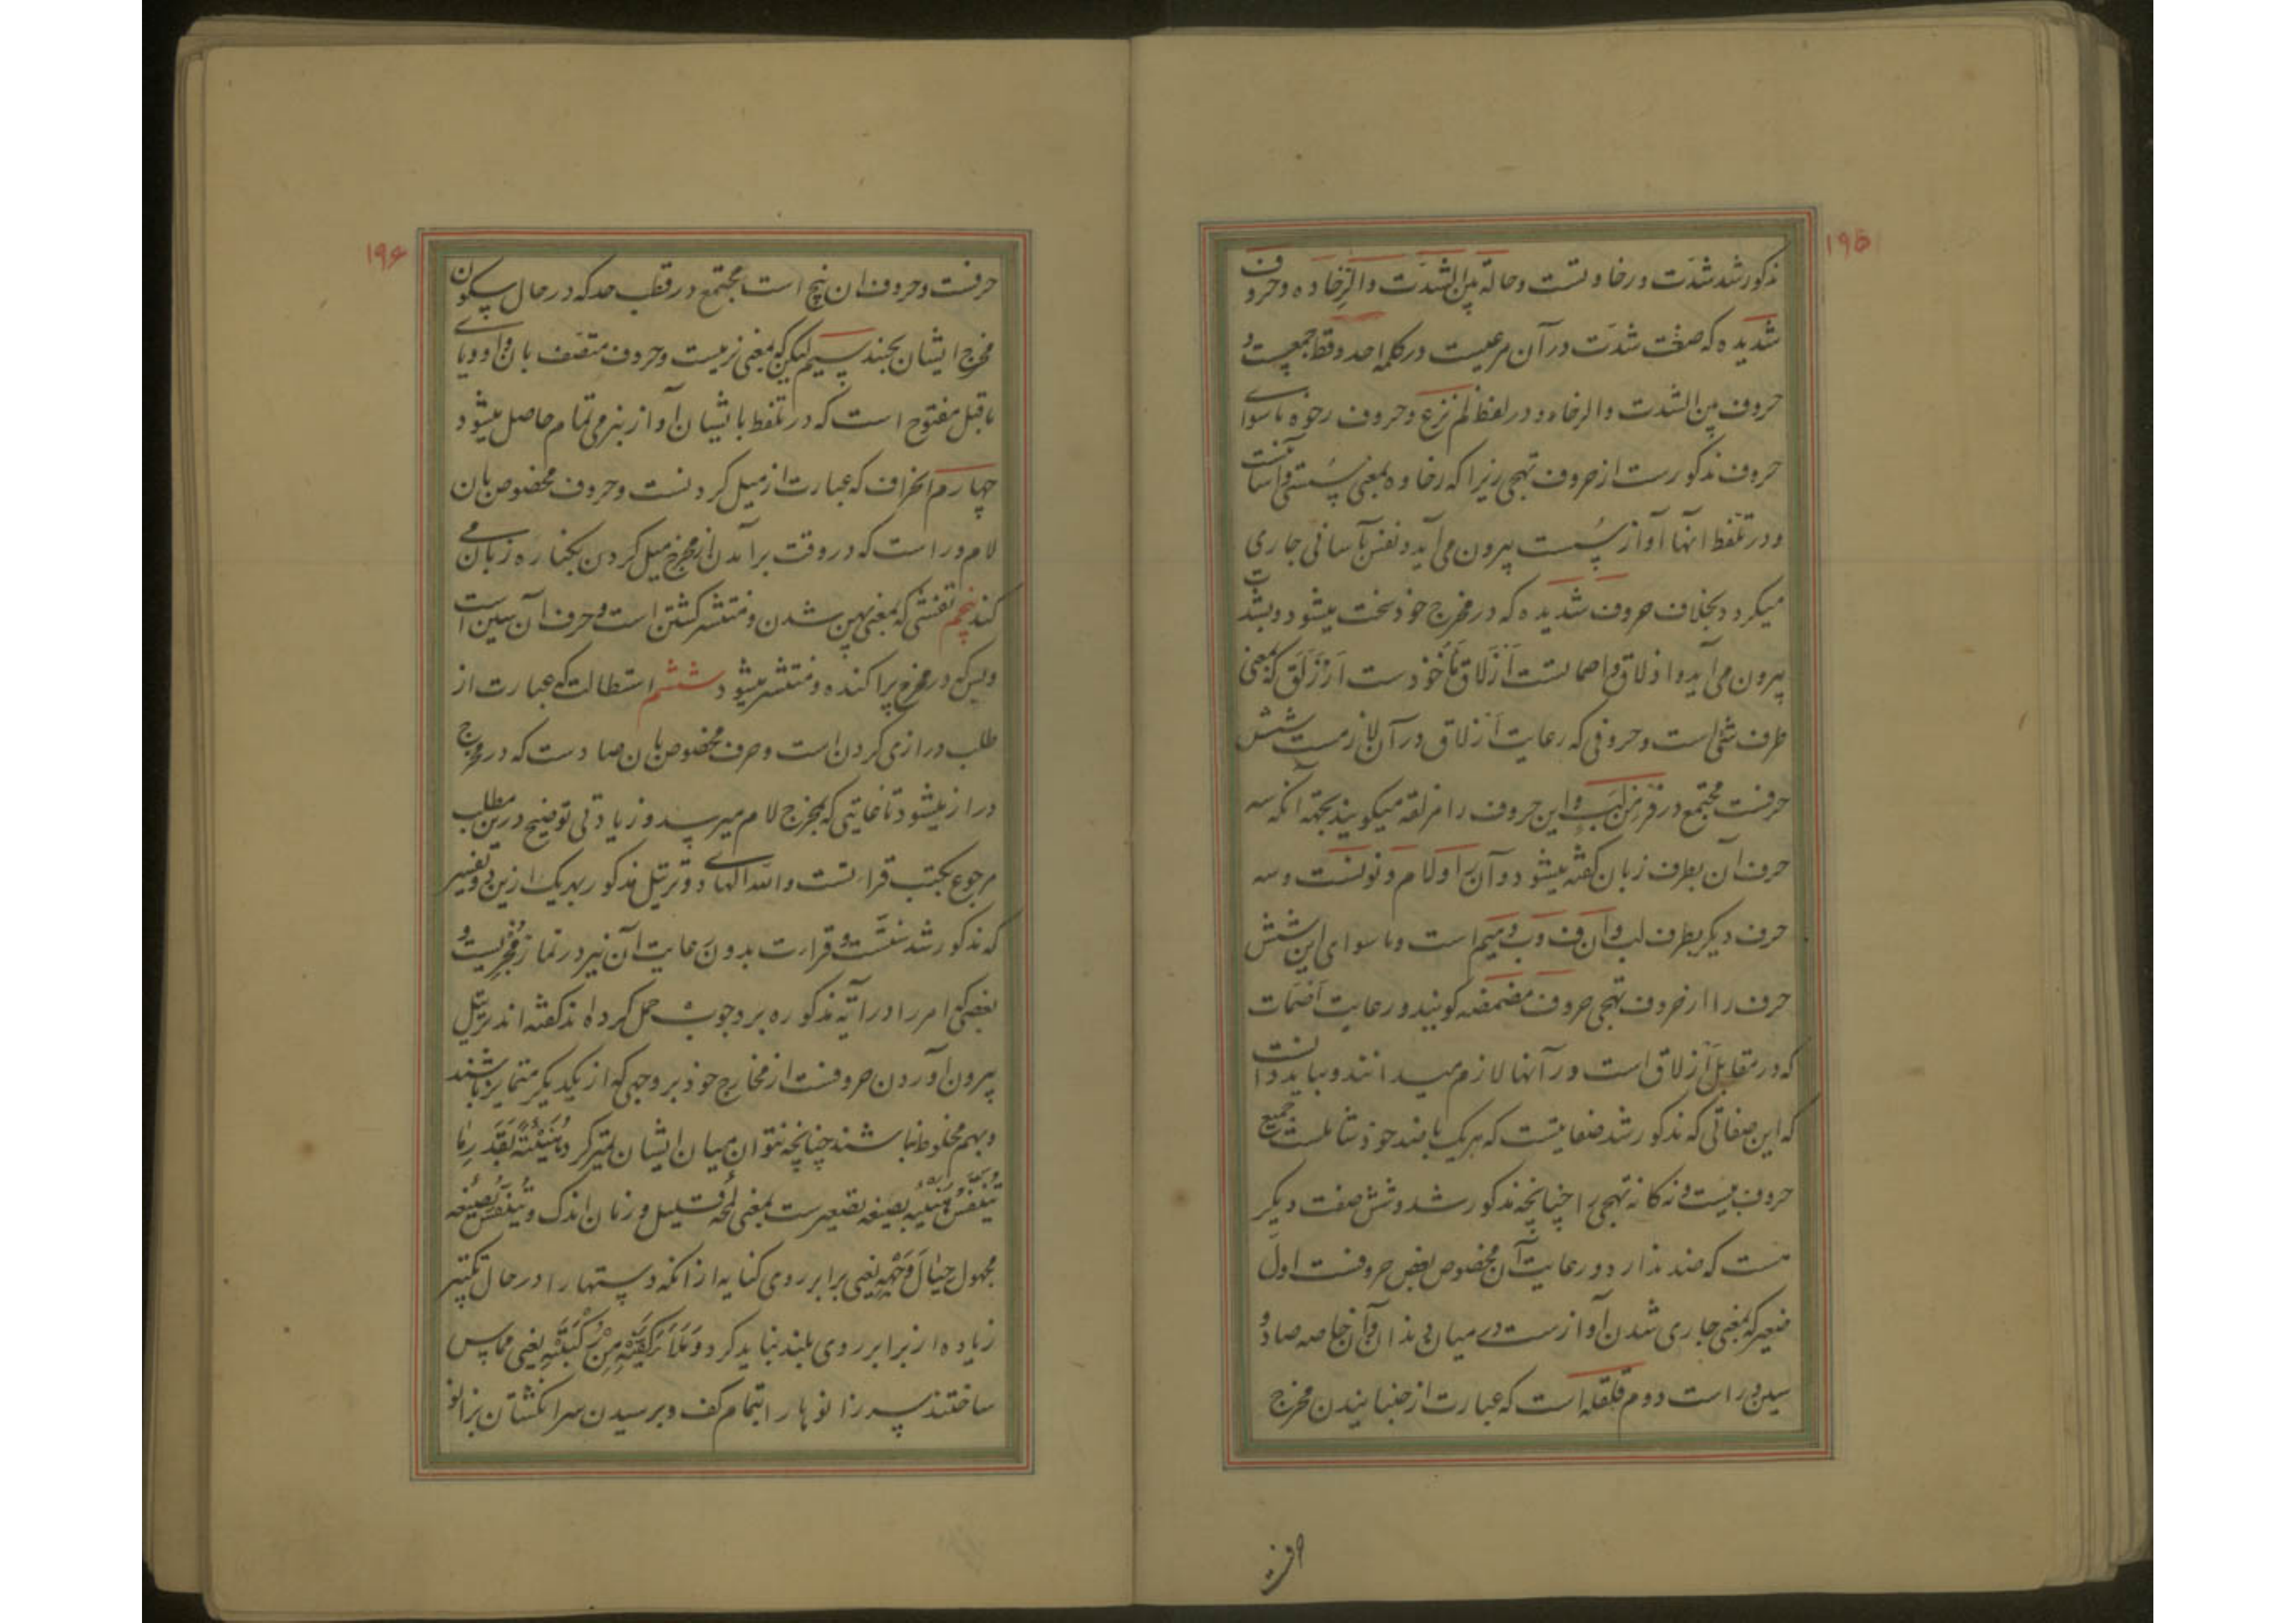 ۱۹۵
مذکور شد شدّت و رخاوتست و حالة بین الشدّت والرخاوه و حروف
شدیده که صفت شدّت در آن مرعیست در کلمه احد و قط جمعیست و
حروف بین الشدت والرخاوه در لفظ لم نزع و حروف رخوه ماسوای
حروف مذکورست از حروف تهجی زیرا که رخاوه بمعنی سستی و آسانیست
و در تلفظ آنها آواز سست بیرون می آید و نفس بآسانی جاری
میکردد بخلاف حروف شدیده که در مخرج خود سخت میشود و بشدت
بیرون می آید و اذلاق و اصمانست اَزلاق مأخوذست از زلق که بمعنی
طرف شئ است و حروفی که رعایت ازلاق در آن لازمست شش
حرفست مجتمع در فر من لب و این حروف را مزلقه میکویند بجهة آنکه سه
حرف آن بطرف زبان کفته میشود و آن را و لام و نونست و سه
حرف دیکر بطرف لب و آن ف و ب و میم است و ماسوای این شش
حرف را از حروف تهجی حروف مضمضه کویند و رعایت اضمات
که در مقابل ازلاق است در آنها لازم میدانند و بباید دانست
که این صفاتی که مذکور شد صفاتیست که هریک با ضد خود شاملست جمیع
حروف بیست و نه کانه تهجی را چنانچه مذکور شد و شش صفت دیکر
هست که ضد ندارد و رعایت آن مخصوص بعض حروفست اول
صفیر که بمعنی جاری شدن آواز ست در میان دندان و آن خاصه صاد و
سین و زا است دوم قلقله است که عبارت از جنبانیدن مخرج
۱۹۶
حرفست و حروف ان پنج است مجتمع در قطب جد که در حال سکون
مخرج ایشان بجنبد سیم لین که بمعنی نرمیست و حروف متصف بان واو و یای
ماقبل مفتوح است که در تلفظ بایشان آواز بنرمی تمام حاصل میشود
چهارم انحراف که عبارت از میل کردنست و حروف مخصوص بان
لام و را است که در وقت برآمدن از مخرج میل کردن بکناره زبان می
کند پنجم تفشی که بمعنی پهن شدن و منتشر کشتن است و حرف آن شین است
و بس که در مخرج پراکنده و منتشر میشود ششم استطالت که عبارت از
طلب درازی کردن است و حرف مخصوص بان ضادست که در مخرج
دراز میشود تا غایتی که بمخرج لام میرسد و زیادتی توضیح درین مطلب
مرجوع بکتب قرائتست والله الهادی و ترتیل مذکور بهریک ازین دو تفسیر
که مذکور شد سنتست و قرارت بدون رعایت آن نیز در نماز مجزیست و
بعضی که امر را در آیه مذکوره بر وجوب حمل کرده اند کفته اند ترتیل
بیرون آوردن حروفست از مخارج خود بر وجهی که از یکدیکر متمایز باشند
و بهم مخلوط نباشند چنانچه نتوان میان ایشان تمیز کرد هُنَیئَةً بقدر ما
یتنفّس هنیئه بصیغه تصغیرست بمعنی لمحه قلیل و زمان اندک و یتنفّس بصیغه
مجهول حِیالَ وَجهِهِ یعنی برابر روی کنایه از انکه دستها را در حال تکبیر
زیاده از برابر روی بلند نباید کرد وَمَلَأ کَفَّیهِ مِن رُکبَتَیهِ یعنی مماس
ساختند سر زانوها را بتمام کف و برسیدن سر انکشتان بزانو